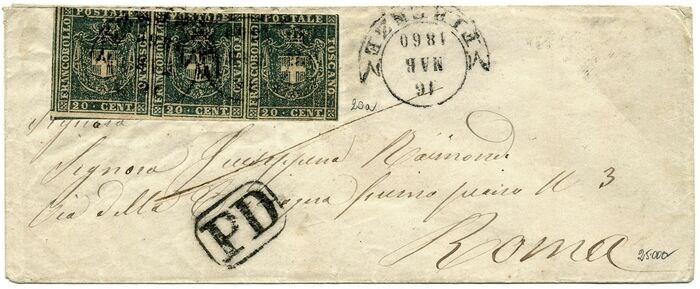 POSTALE POSTALE POSTALE
FRANCOBOLLO TOSCANO FRANCOBOLLO TOSCANO FRANCOBOLLO TOSCANO
20 CENT 20 CENT 20 CENT
FIRENZE
16
MAR
1860
20a
Signora
Signora Giuseppina Raimondi
Via della primo piano N 3
PD
Roma
25000